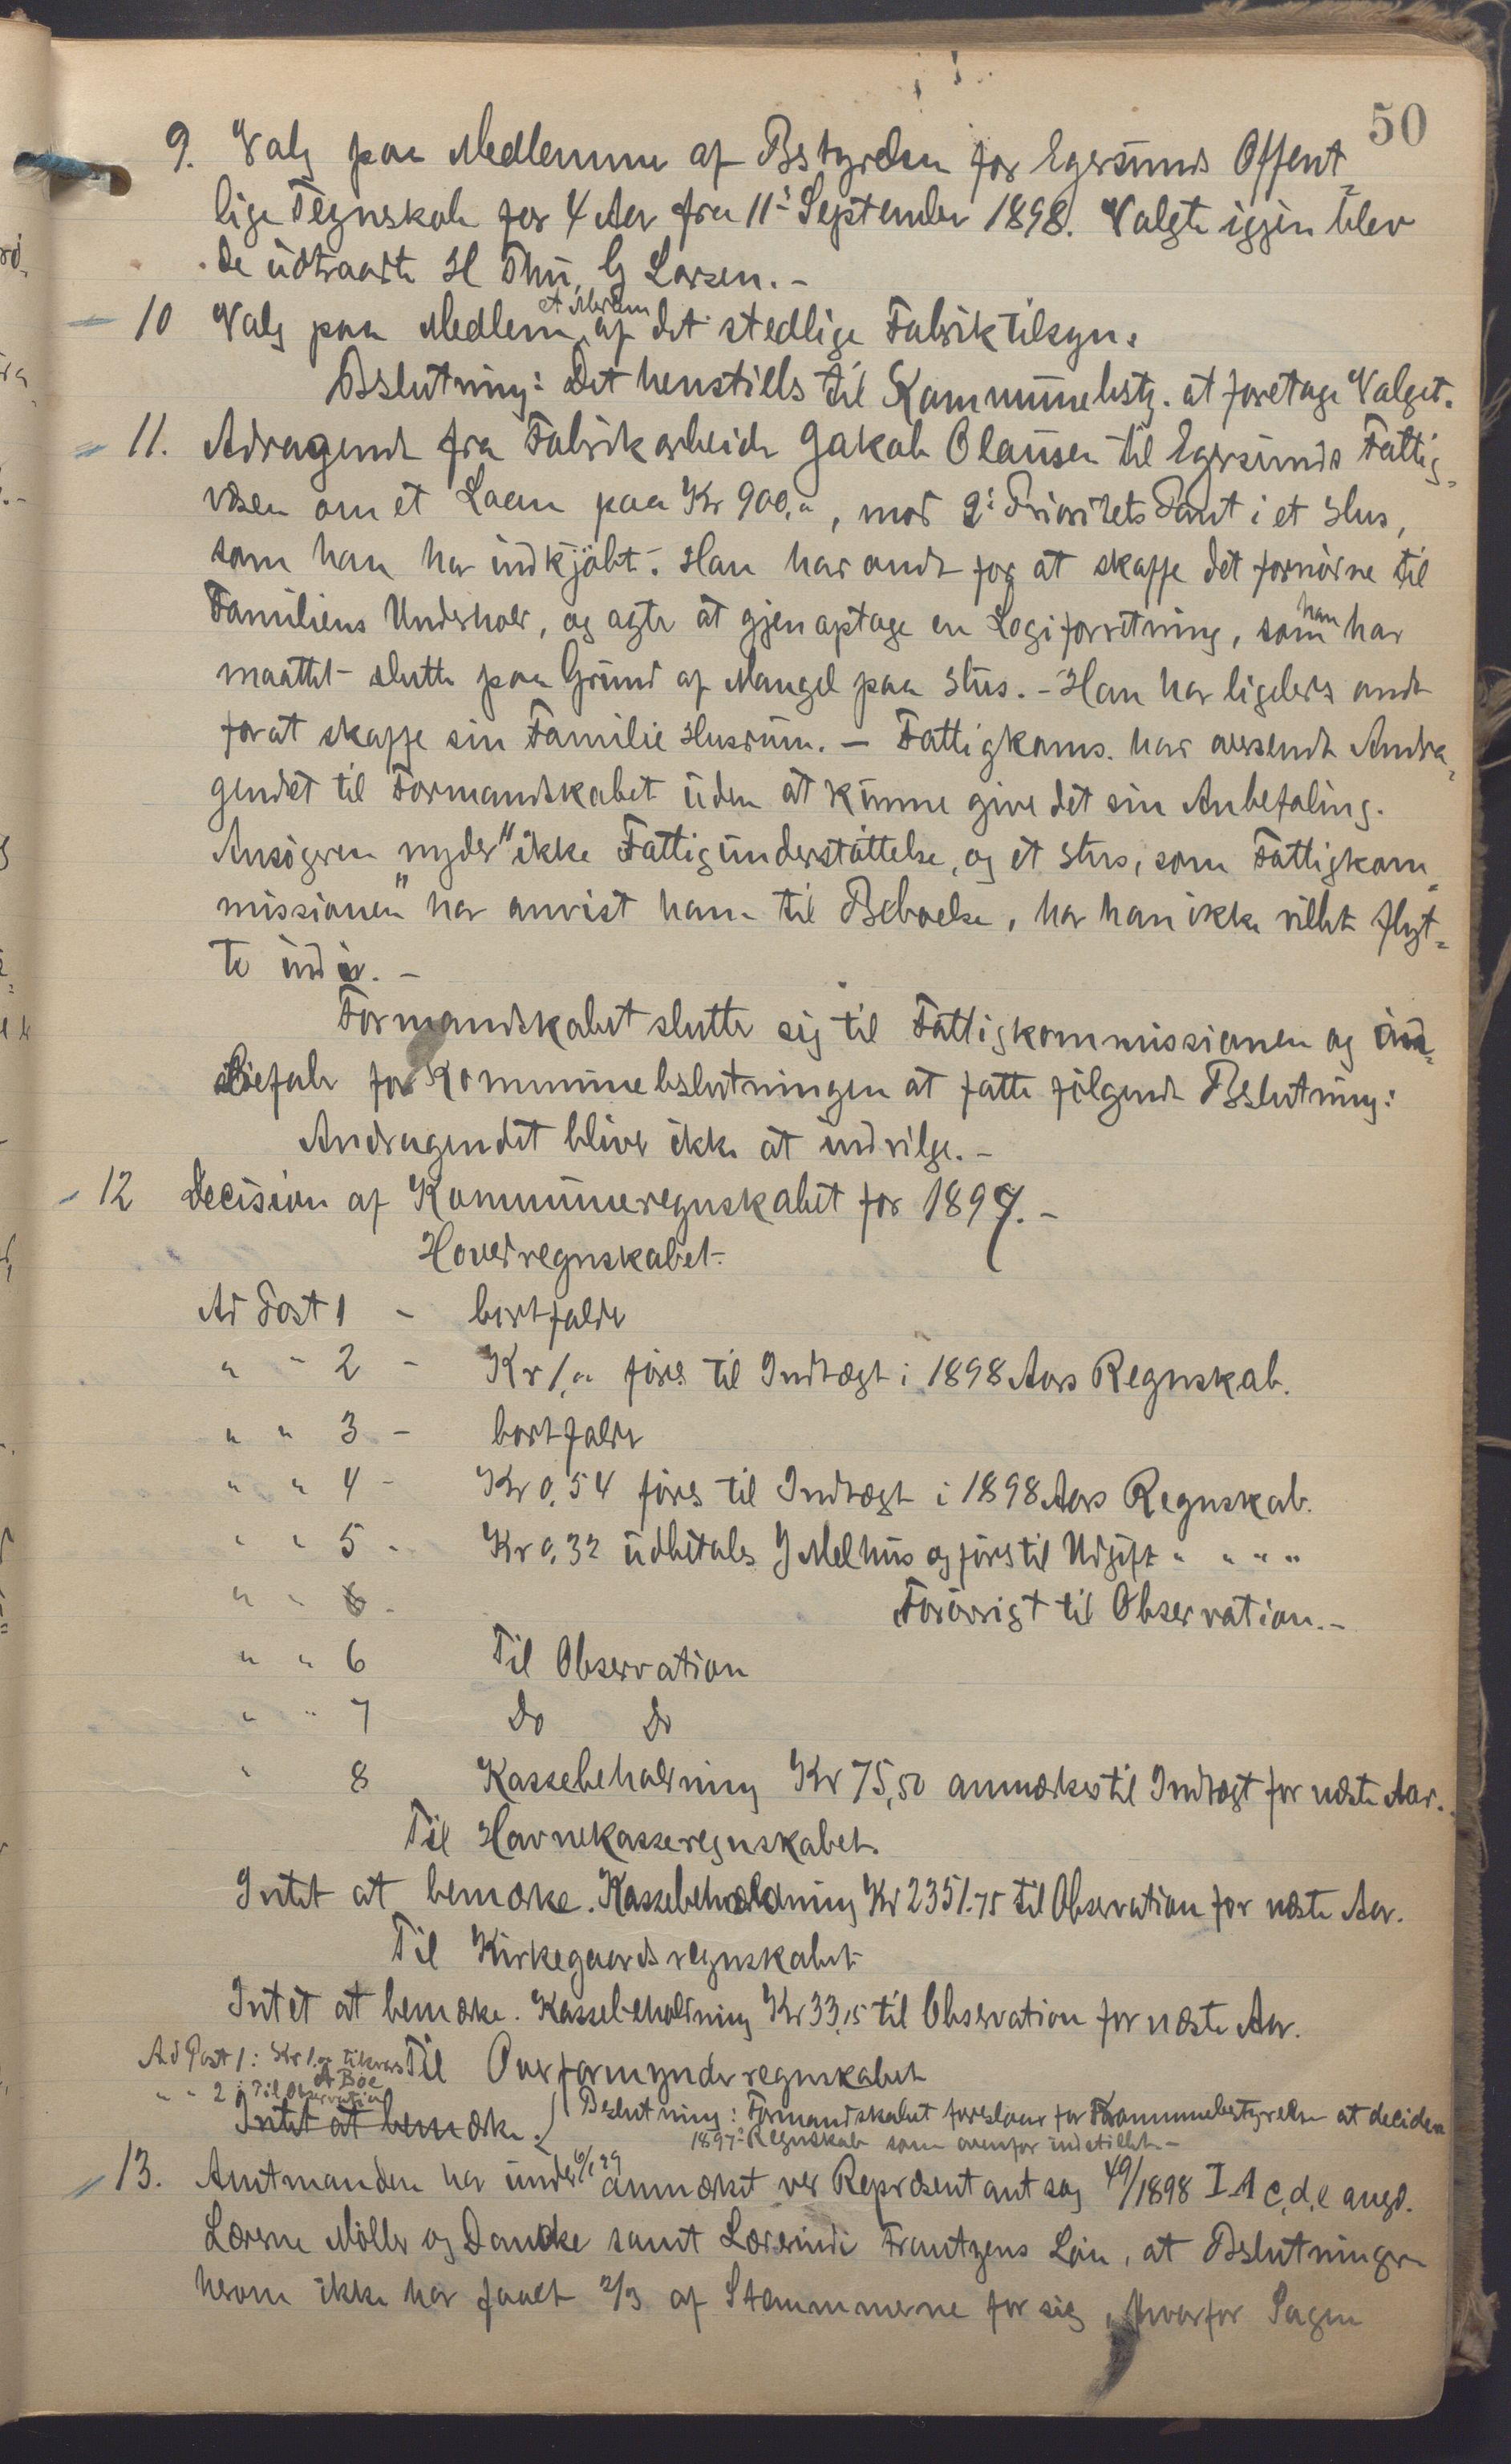 50
9. Valg paa Medlemme af Bstyrelsen for Egersunds Offent-
lige Tegneskole for 4 Aar fra 11te September 1898. Valgte igjen blev
de udtraadte H Thu, G Larsen. -
10 Valg paa Medlem et Medlem af det stedlige Fabriktilsyn.
Bslutning: Det henstilles til Kommunebsty. at foretage Valget.
11. Adragende fra Fabrikarbeider Jakob Olausen til Egersunds Fattig-
væsen om et Laan paa Kr 900,", mod 2' Prioritets Pant i et Hus,
som han har indkjøbt. - Han har ondt for at skaffe det fornødne til
Familiens Underhold, og agter at gjenoptage en Logiforretning, som han har
maattet slutte paa Grund af Mangel paa Hus. - Han har ligeledes ondt
for at skaffe sin Familie Husrum. - Fattigkoms. har oversendt Andra-
gendet til Formandskabet uden at kunne give det sin Anbefaling.
Ansøgeren nyder "ikke Fattigunderstøttelse, og et Hus, som Fattigkom-
missionen" har anvist ham til Beboelse, har han ikke villet flyt-
te ind i. -
Formandskabet slutter sig til Fattigkommissionen og
for Kommunebslutningen at fatte følgende Bslutning:
Andragendet bliver ikke at indvilge. -
12 Decision af Kommuneregnskabet for 1897. -
Hovedregnskabet.
Ad Post 1 - bortfalder
" " 2 - Kr 1," føres til Indtægt i 1898 Aars Regnskab.
" " 3 - bortfalder
" " 4 - Kr 0,54 føres til Indtægt i 1898 Aars Regnskab.
" " 5 - Kr 0,32 udbetales J Melhus og føres til Udgift " " " "
" " 6 - Forøvrigt til Observation. -
" " 6 Til Observation
" " 7 Do Do
" 8 Kassebeholdning Kr 75,50 anmærkes til Indtægt for næste Aar.
Til Havnekasseregnskabet.
Intet at bemærke. Kassebeholdning Kr 2351.75 til Observation for næste Aar.
Til Kirkegaardsregnskabet
Intet at bemærke. Kassebeholdning Kr 33,15 til Observation for næste Aar.
Ad Post 1: Kr 1," A Böe
Til Overformynderregnskabet
" " 2 : Til Observation
Intet at bemærke. { Bslutning: Formandskabet foreslaar for Kommunebestyrelsen at decidere
1897' Regnskab som ovenfor indstillet. -
13. Amtmanden har under anmærket ved Repræsentantsag 49/1898 I A c, d, e angd.
Lærerne Möller og Dancke samt Lærerinde Frantzens Løn, at Bslutningen
herom ikke har faaet 2/3 af Stemmerne for sig, hvorfor Sagen